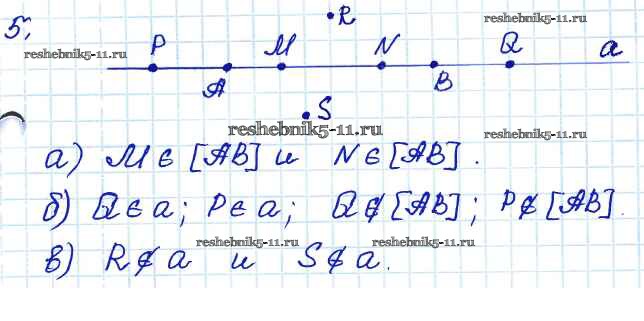 5.
R
reshebnik5-11.ru
reshebnik5-11.ru
P M N Q a
A B
S
reshebnik5-11.ru
reshebnik5-11.ru
а) M ∈ [AB] и N ∈ [AB].
б) Q ∈ a; P ∈ a; Q ∉ [AB]; P ∉ [AB]
reshebnik5-11.ru reshebnik5-11.ru
в) R ∉ a и S ∉ a.